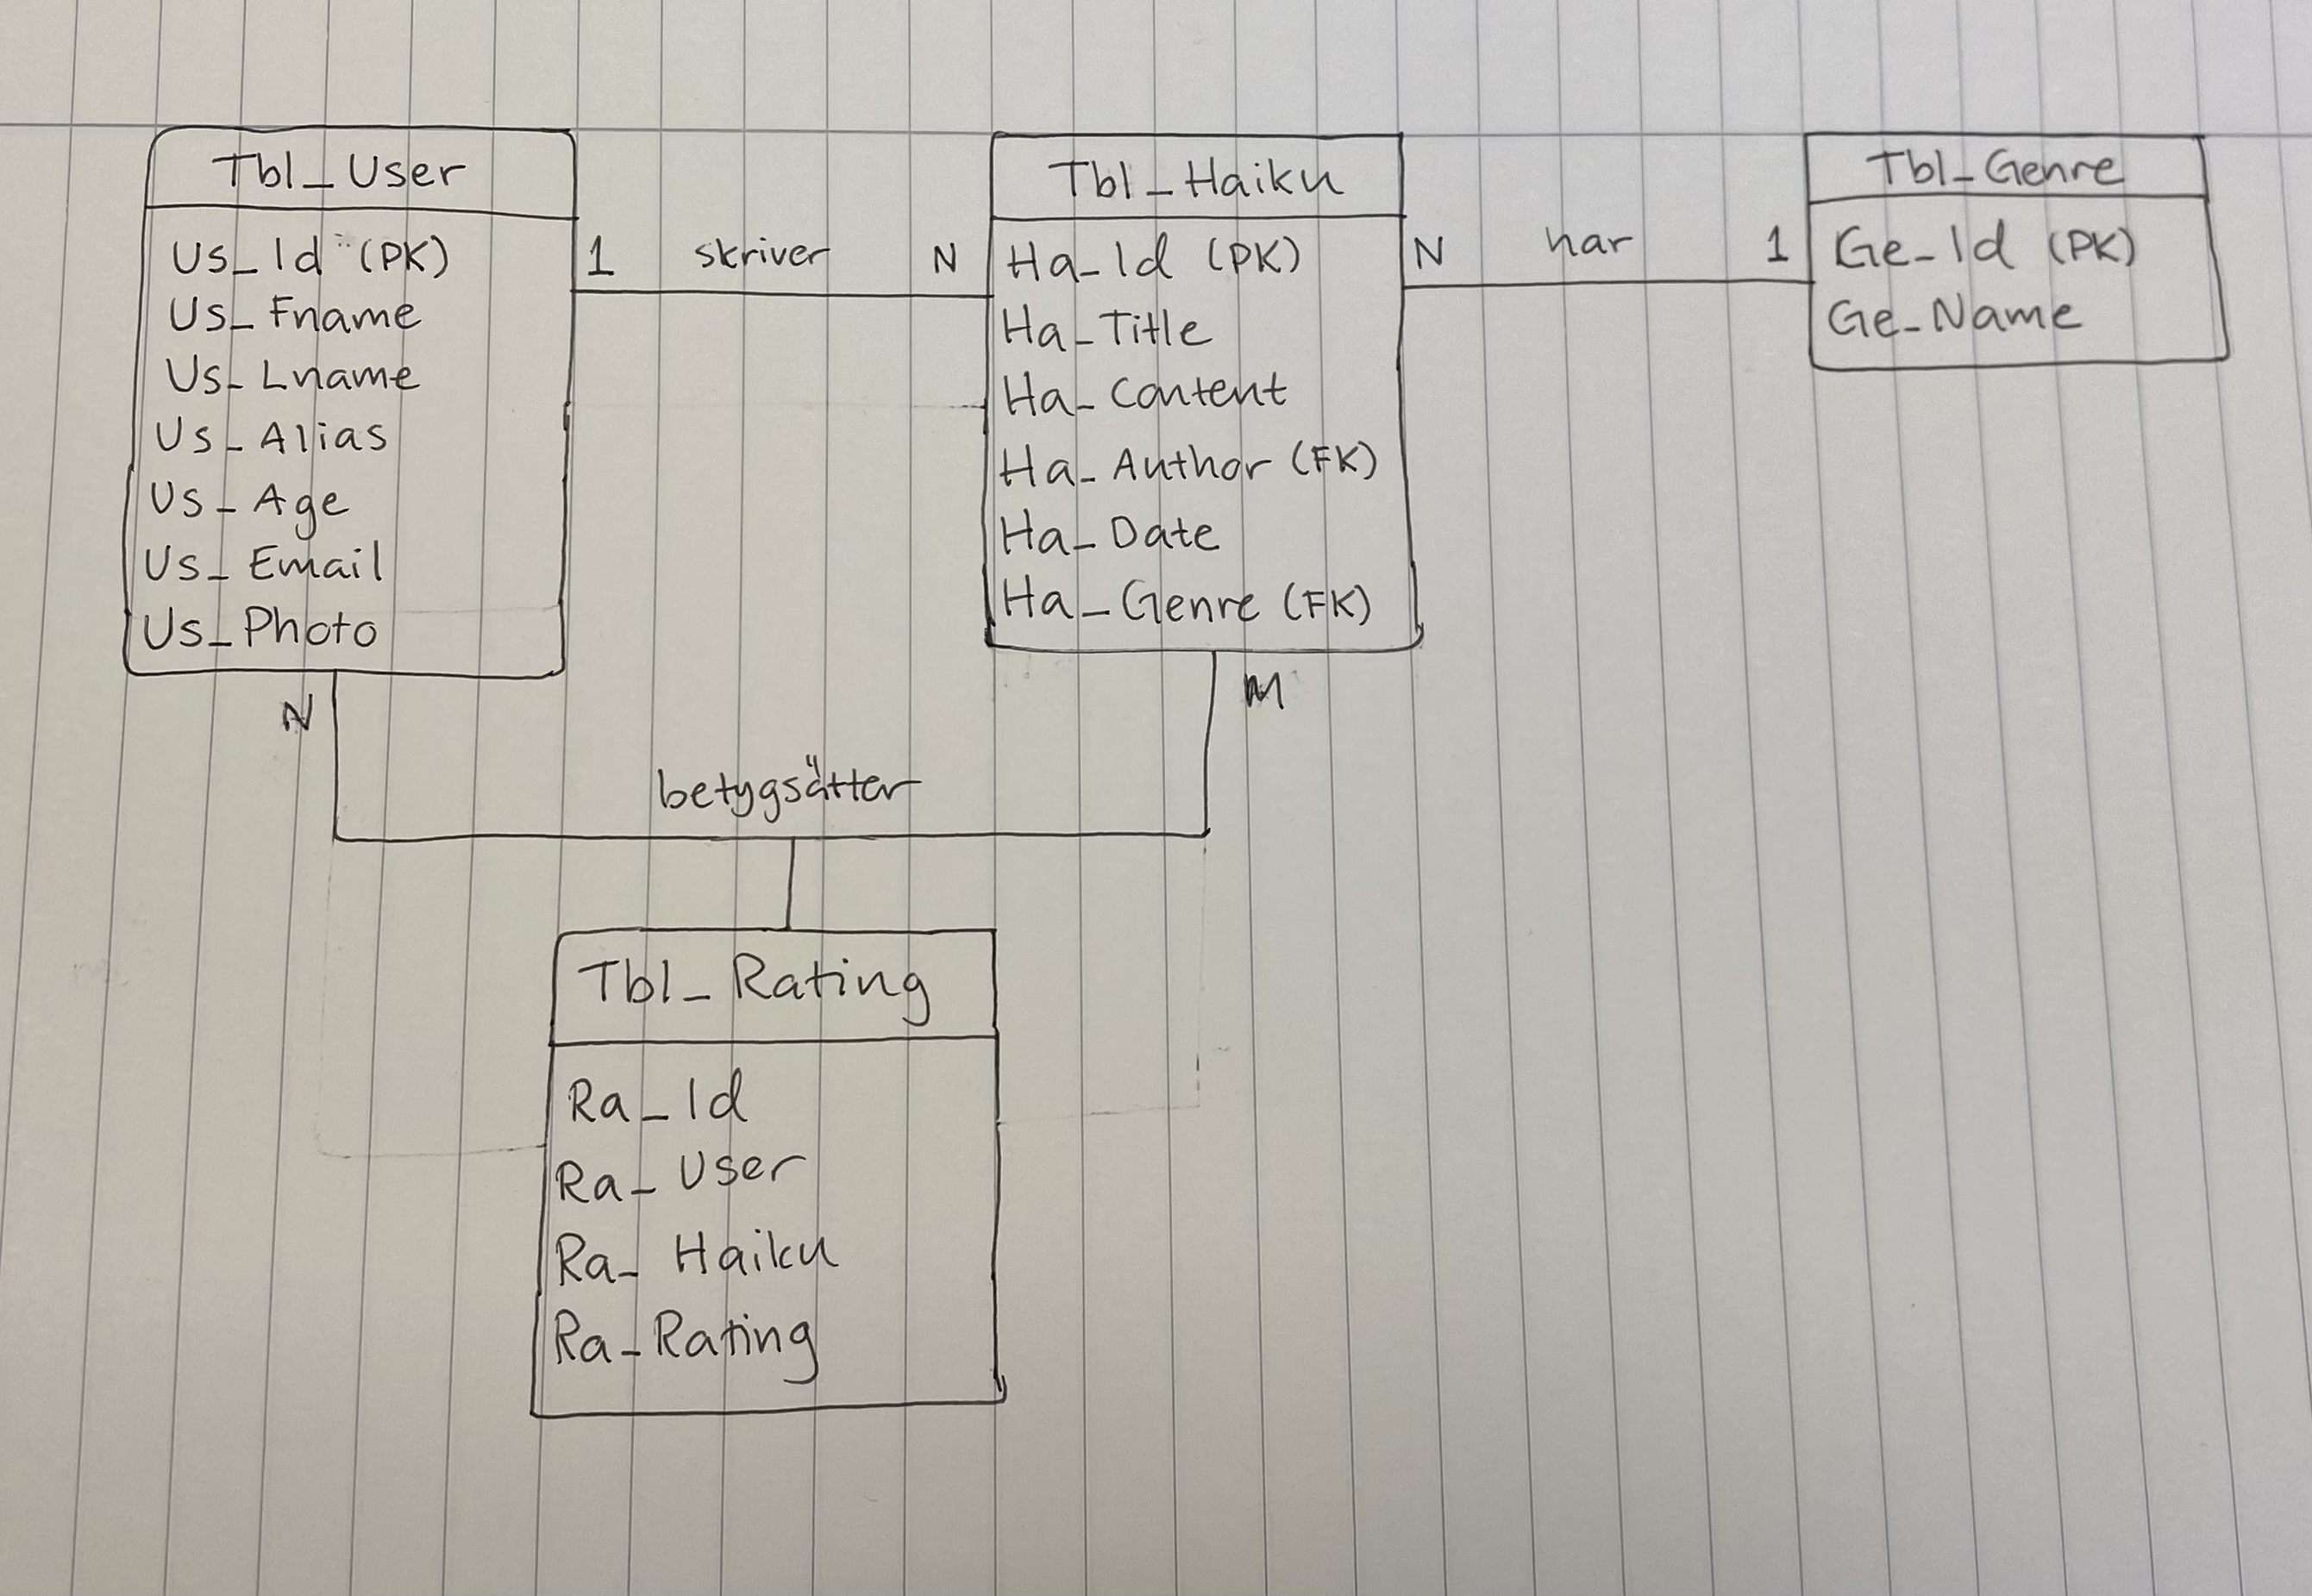 Tbl_User
Us_Id (PK)
Us_Fname
Us_Lname
Us_Alias
Us_Age
Us_Email
Us_Photo
1 skriver N
Tbl_Haiku
Ha_Id (PK)
Ha_Title
Ha_Content
Ha_Author (FK)
Ha_Date
Ha_Genre (FK)
N har 1
Tbl_Genre
Ge_Id (PK)
Ge_Name
N
M
betygsätter
Tbl_Rating
Ra_Id
Ra_User
Ra_Haiku
Ra_Rating